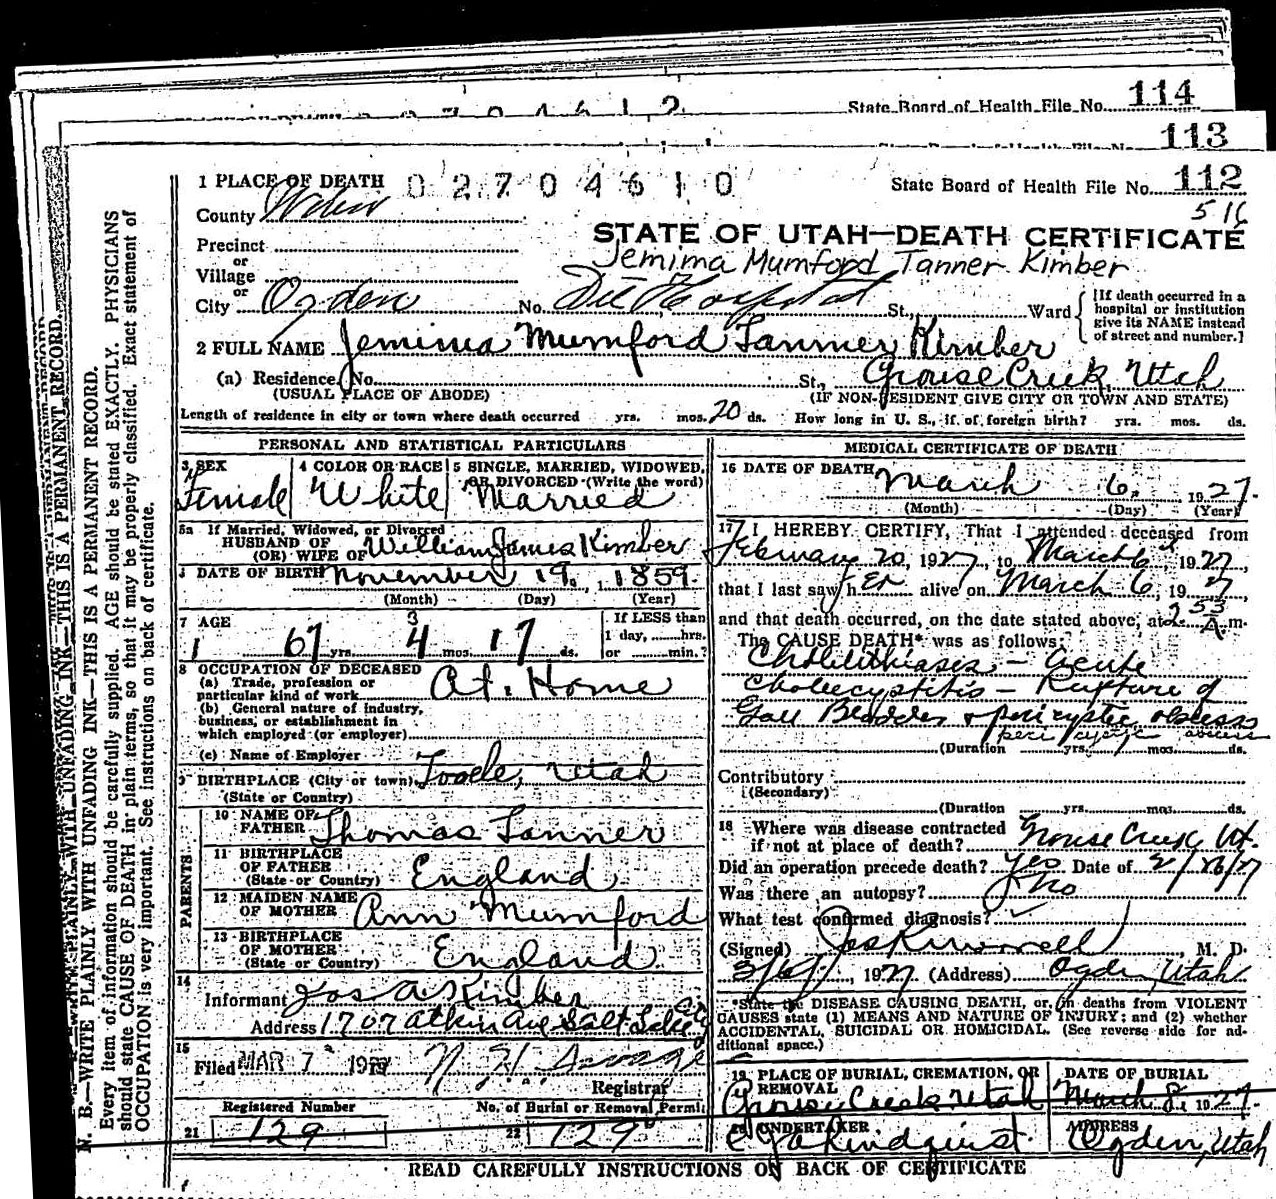 State Board of Health File No. 114
113
1 PLACE OF DEATH 02704610 State Board of Health File No. 112
County Weber 516
STATE OF UTAH—DEATH CERTIFICATE
Precinct
or
Village
Jemima Mumford Tanner Kimber
or
City Ogden No. Dee Hospital St., Ward {[If death occurred in a hospital or institution give its NAME instead of street and number.]
2 FULL NAME Jemima Mumford Tanner Kimber
(a) Residence. No. St., Grouse Creek, Utah
(USUAL PLACE OF ABODE) (IF NON-RESIDENT GIVE CITY OR TOWN AND STATE)
Length of residence in city or town where death occurred yrs. mos. 20 ds. How long in U. S., if of foreign birth? yrs. mos. ds.
PERSONAL AND STATISTICAL PARTICULARS
3 SEX Female
4 COLOR OR RACE White
5 SINGLE, MARRIED, WIDOWED, OR DIVORCED (Write the word) Married
5a If Married, Widowed, or Divorced
HUSBAND OF
(OR) WIFE OF William James Kimber
DATE OF BIRTH November 19, 1859
(Month) (Day) (Year)
7 AGE If LESS than
3 1 day, hrs.
1 67 yrs. 4 mos. 17 ds. or min.?
8 OCCUPATION OF DECEASED
(a) Trade, profession or
particular kind of work At Home
(b) General nature of industry,
business, or establishment in
which employed (or employer)
(c) Name of Employer
9 BIRTHPLACE (City or town) Tooele, Utah
(State or Country)
PARENTS
10 NAME OF
FATHER Thomas Tanner
11 BIRTHPLACE
OF FATHER
(State or Country) England
12 MAIDEN NAME
OF MOTHER Ann Mumford
13 BIRTHPLACE
OF MOTHER
(State or Country) England
14
Informant Jos A Kimber
Address 1707 Atkin Ave Salt Lake City
15
Filed MAR 7 192
Registrar
Registered Number No. of Burial or Removal Permit
21 129 22 129
MEDICAL CERTIFICATE OF DEATH
16 DATE OF DEATH March 6, 1927.
(Month) (Day) (Year)
17 I HEREBY CERTIFY, That I attended deceased from
February 20, 1927, to March 6th, 1927,
that I last saw her alive on March 6, 1927,
and that death occurred, on the date stated above, at 2 53 A.m.
The CAUSE DEATH* was as follows:
Cholelithiasis — Acute
Cholecystitis — Rupture of
Gall Bladder & pericystic abscess
peri cystic abscess
(Duration yrs. mos. ds.
Contributory
(Secondary)
(Duration yrs. mos. ds.
18 Where was disease contracted
if not at place of death? Grouse Creek, Ut.
Did an operation precede death? Yes Date of 2/26/27
Was there an autopsy? No
What test confirmed diagnosis?
(Signed) , M. D.
3/6/, 1927 (Address) Ogden, Utah
*State the DISEASE CAUSING DEATH, or, in deaths from VIOLENT
CAUSES state (1) MEANS AND NATURE OF INJURY; and (2) whether
ACCIDENTAL, SUICIDAL OR HOMICIDAL. (See reverse side for additional space.)
19 PLACE OF BURIAL, CREMATION, OR
REMOVAL
Grouse Creek Utah
DATE OF BURIAL
March 8, 1927.
20 UNDERTAKER
ADDRESS
Ogden, Utah
READ CAREFULLY INSTRUCTIONS ON BACK OF CERTIFICATE
N. B.—WRITE PLAINLY WITH UNFADING INK—THIS IS A PERMANENT RECORD.
Every item of information should be carefully supplied. AGE should be stated EXACTLY. PHYSICIANS
should state CAUSE OF DEATH in plain terms, so that it may be properly classified. Exact statement of
OCCUPATION is very important. See instructions on back of certificate.